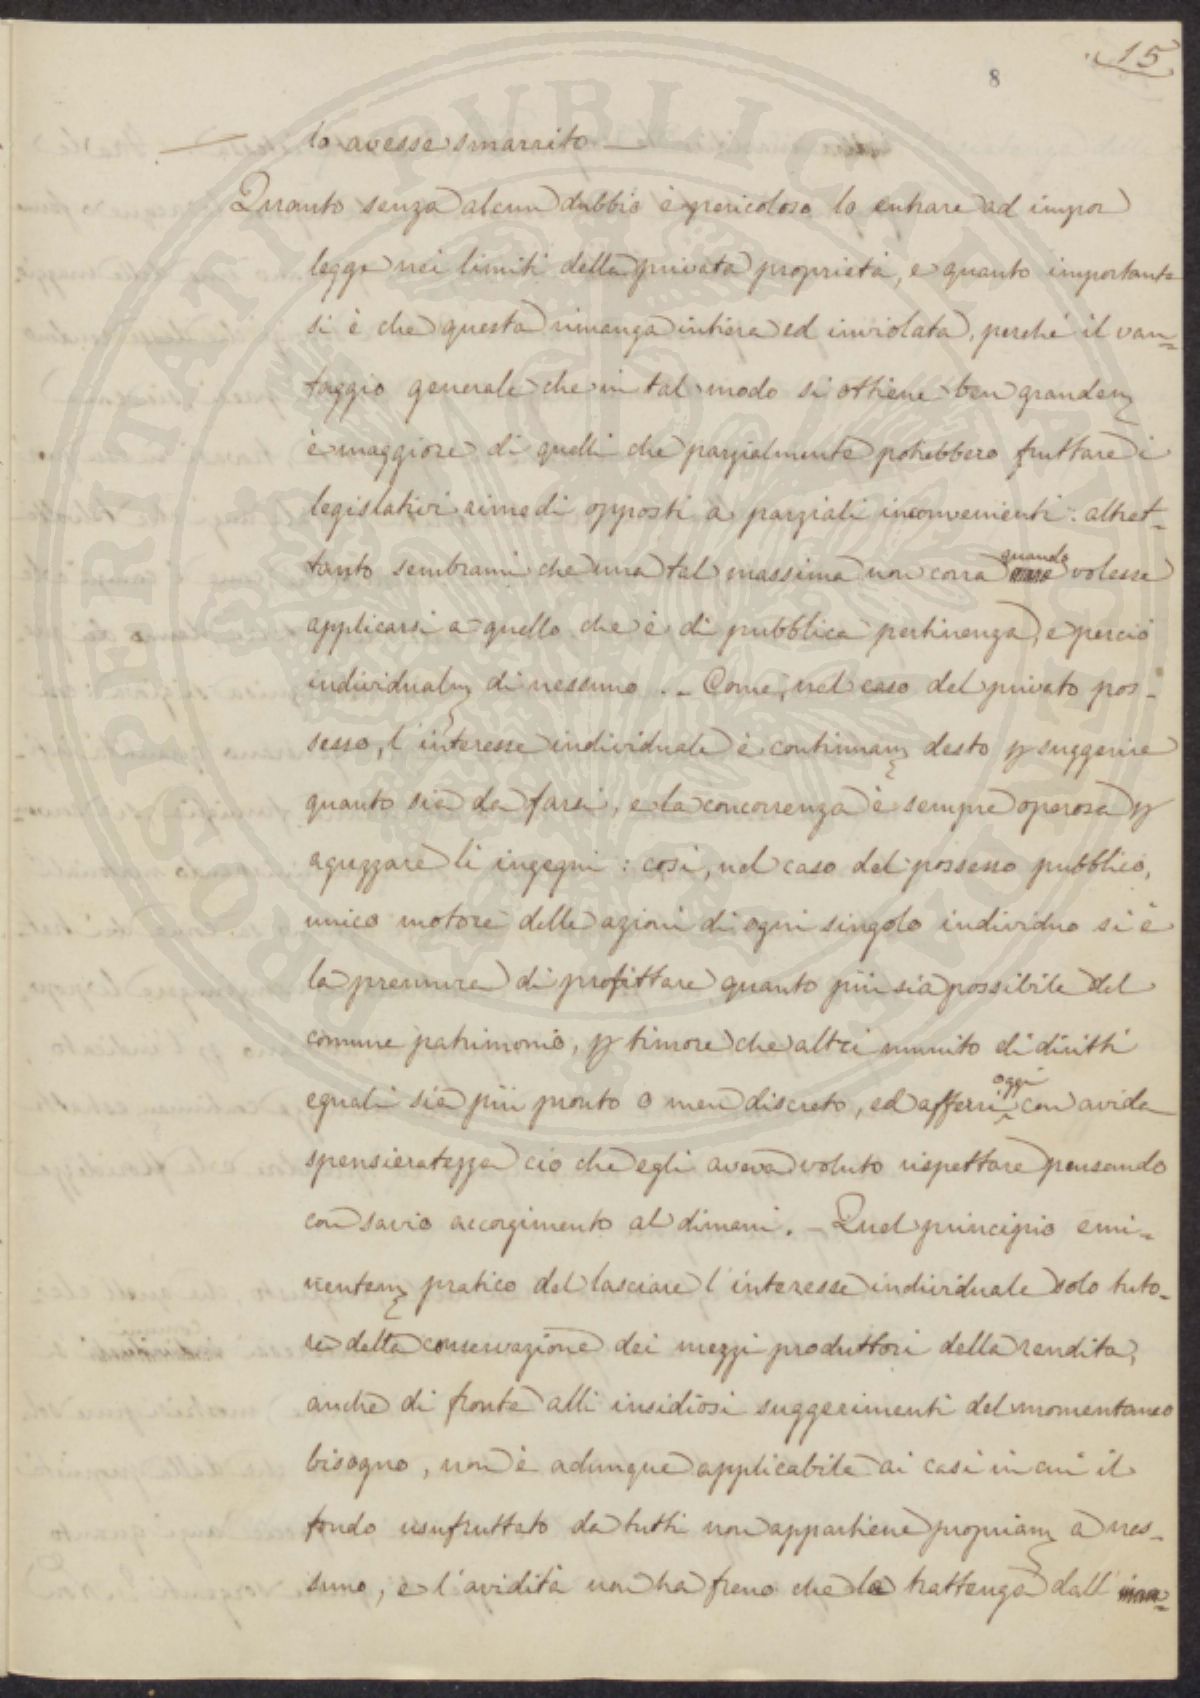 15
8
lo avesse smarrito. —
Quanto senza alcun dubbio è pericoloso lo entrare ad impor
legge nei limiti della privata proprietà, e quanto importante
si è che questa rimanga intiera ed inviolata, perché il van=
taggio generale che in tal modo si ottiene ben grandem
è maggiore di quelli che parzialmente potrebbero fruttare i
legislativi rimedi opposti a parziali inconvenienti: altret=
tanto sembrami che una tal massima non corra quando volesse
applicarsi a quello che è di pubblica pertinenza, e perciò
individualm di nessuno. – Come, nel caso del privato pos=
sesso, l'interesse individuale è continuam desto p suggerire
quanto sia da farsi, e la concorrenza è sempre operosa p
aguzzare li ingegni: così, nel caso del possesso pubblico,
unico motore delle azioni di ogni singolo individuo si è
la premura di profittare quanto più sia possibile del
comune patrimonio, p timore che altri munito di diritti
eguali sia più pronto o men discreto, ed afferri oggi con avida
spensieratezza ciò che egli aveva voluto rispettare pensando
con savio accorgimento al dimani. – Quel principio emi=
nentem pratico del lasciare l'interesse individuale solo tuto=
re della conservazione dei mezzi produttori della rendita,
anche di fronte alli insidiosi suggerimenti del momentaneo
bisogno, non è adunque applicabile ai casi in cui il
fondo usufruttato da tutti non appartiene propriam a nes=
suno, e l'avidità non ha freno che la trattenga dall'
PROSPERITATI PVBLICAE AVGENDAE